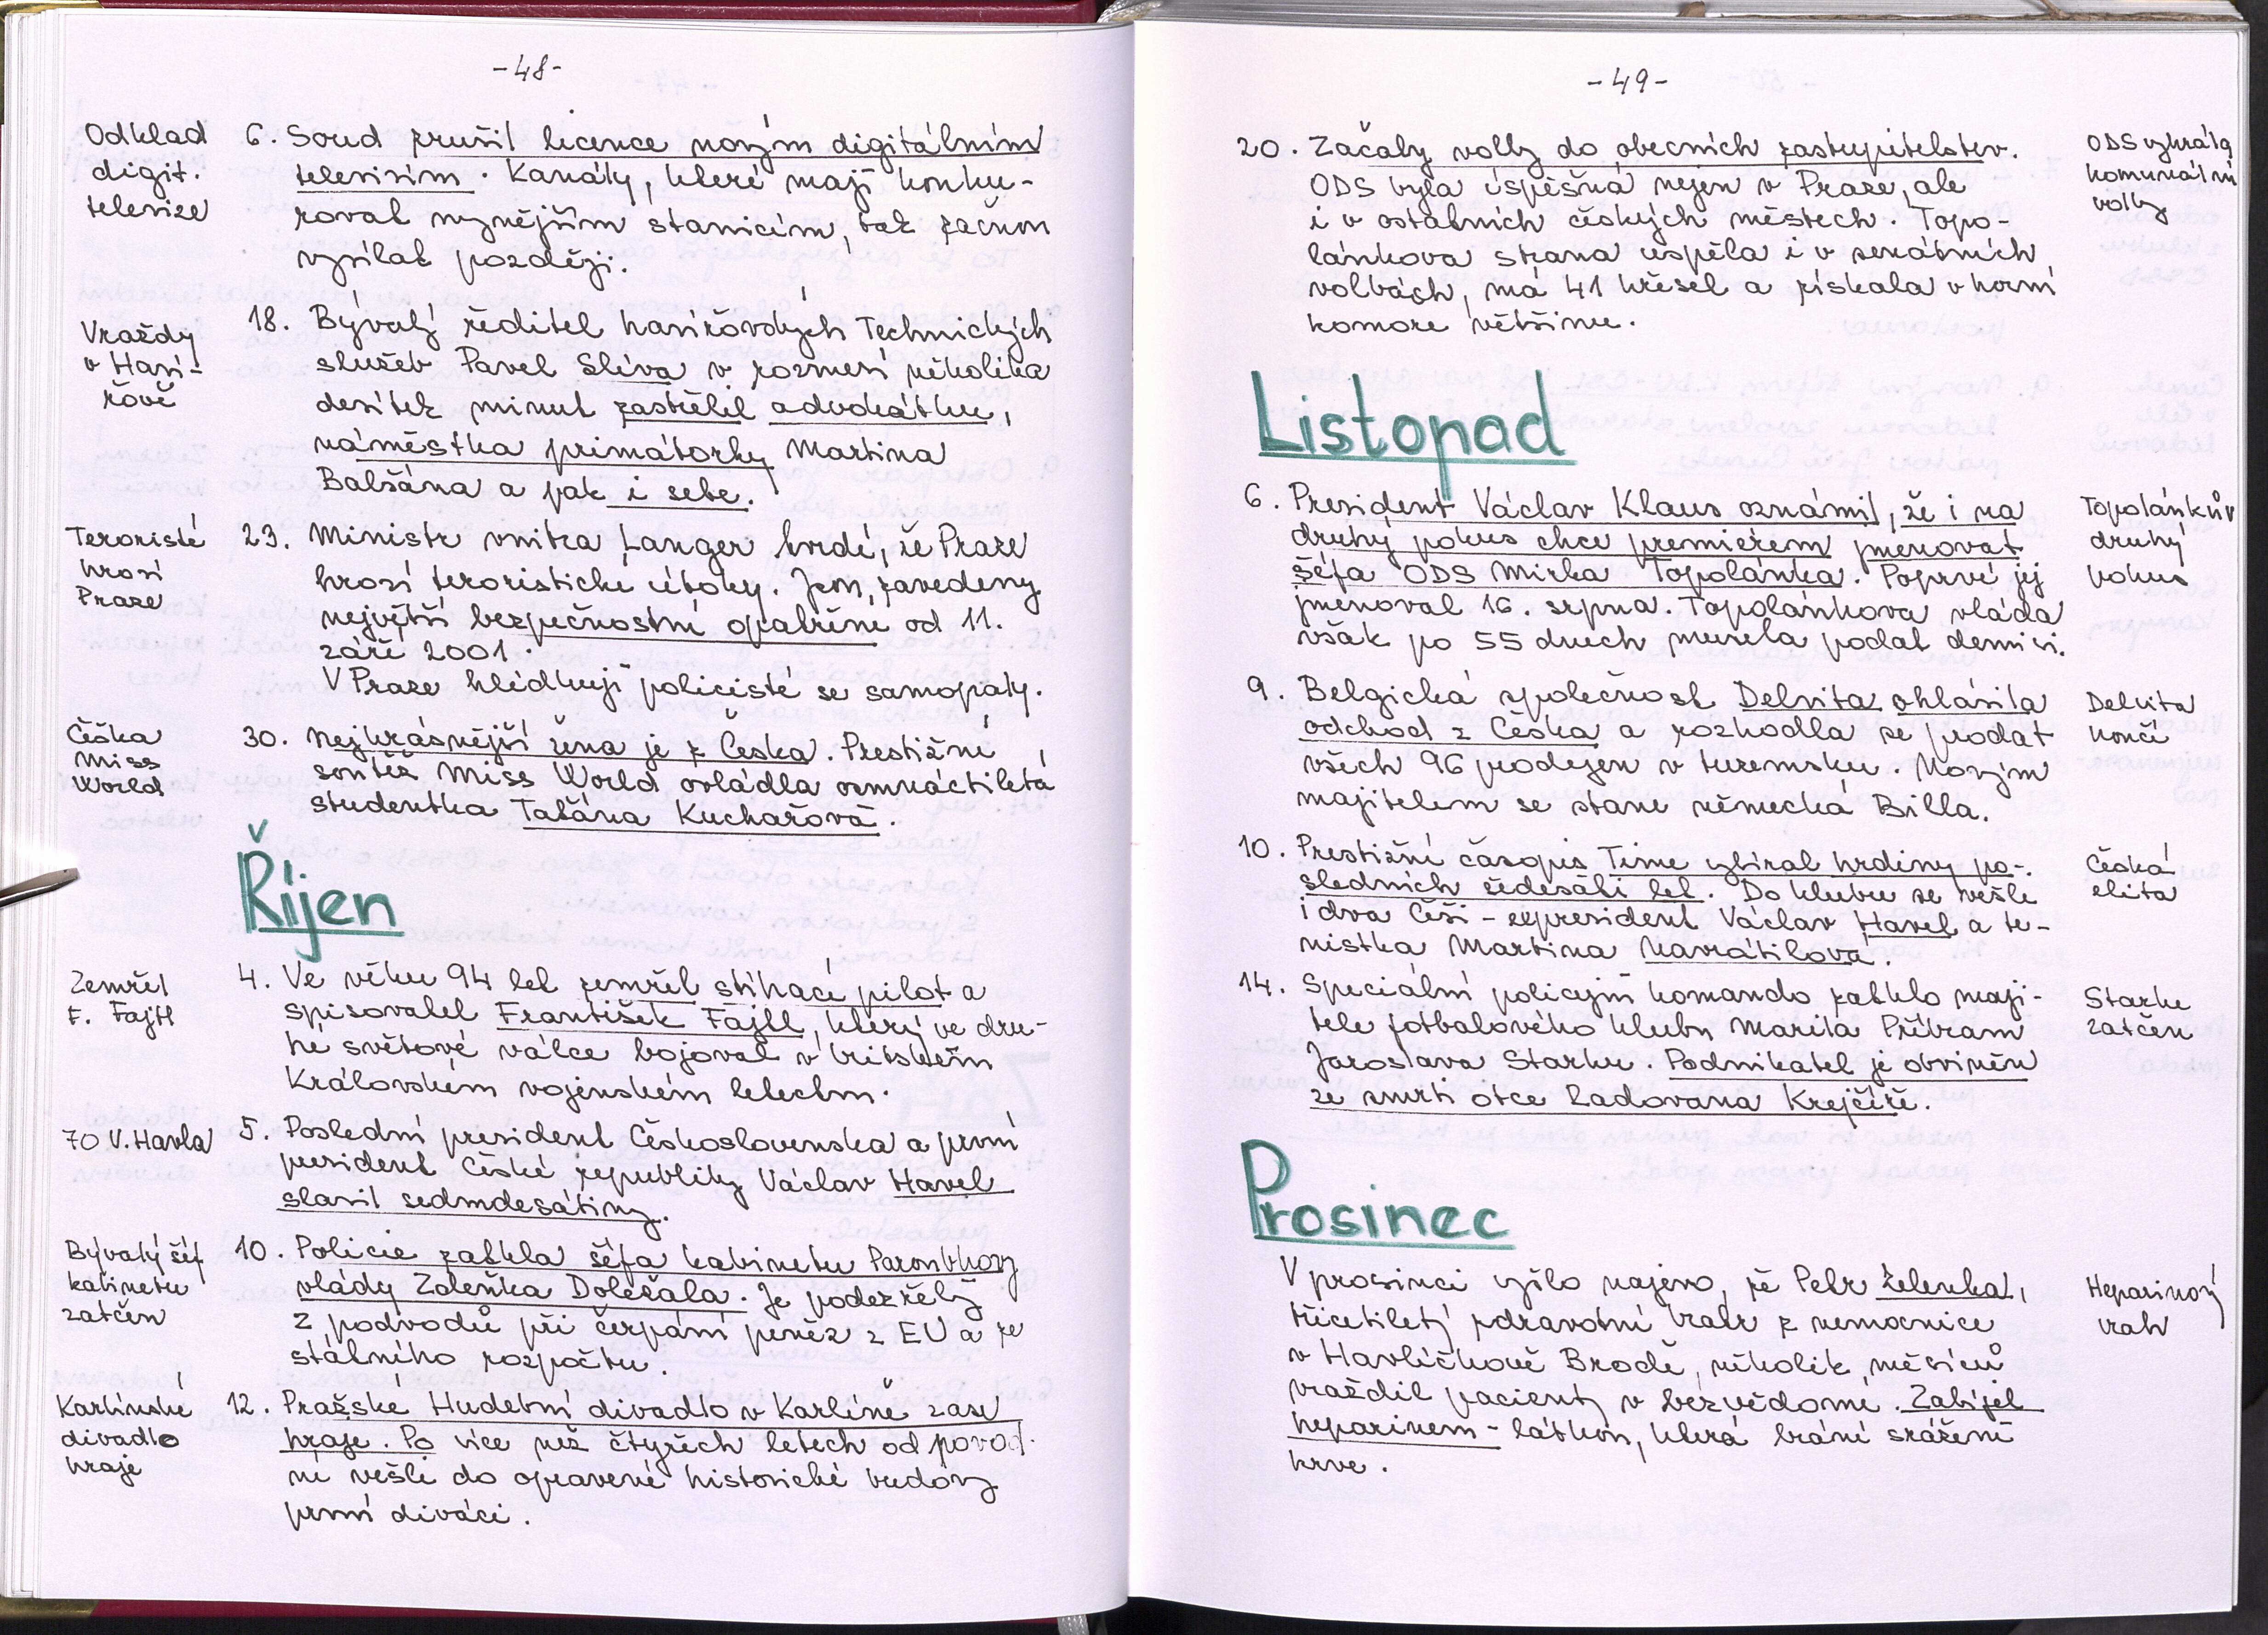 -48-
Odklad
digit.
televize
6. Soud zrušil licence novým digitálním
televizím. Kanály, které mají konku-
rovat nynějším stanicím, tak začnou
vysílat později.
Vraždy
v Haví-
řově
18. Bývalý ředitel havířovských Technických
služeb Pavel Slíva v rozmezí několika
desítek minut zastřelil advokátku,
náměstka primátorky Martina
Balšána a pak i sebe.
Teroristé
hrozí
Praze
23. Ministr vnitra Langer tvrdí, že Praze
hrozí teroristické útoky. Jsou zavedeny
největší bezpečnostní opatření od 11.
září 2001.
V Praze hlídkují policisté se samopaly.
Češka
Miss
World
30. Nejkrásnější žena je z Česka. Prestižní
soutěž Miss World ovládla osmnáctiletá
studentka Taťána Kuchařová.
Říjen
Zemřel
F. Fajtl
4. Ve věku 94 let zemřel stíhací pilot a
spisovatel František Fajtl, který ve dru-
hé světové válce bojoval v britském
Královském vojenském letectvu.
70 V. Havla
5. Poslední president Československa a první
president České republiky Václav Havel
slavil sedmdesátiny.
Bývalý šéf
kabinetu
zatčen
10. Policie zatkla šéfa kabinetu Paroubkovy
vlády Zdeňka Doležala. Je podezřelý
z podvodů při čerpání peněz z EU a ze
státního rozpočtu.
Karlínské
divadlo
hraje
12. Pražské Hudební divadlo v Karlíně zase
hraje. Po více než čtyřech letech od povod-
ní vešli do opravené historické budovy
první diváci.
-49-
20. Začaly volby do obecních zastupitelstev.
ODS byla úspěšná nejen v Praze, ale
i v ostatních českých městech. Topo-
lánkova strana uspěla i v senátních
volbách, má 41 křesel a získala v horní
komoře většinu.
ODS vyhrála
komunální
volby
Listopad
6. President Václav Klaus oznámil, že i na
druhý pokus chce premiérem jmenovat
šéfa ODS Mirka Topolánka. Poprvé jej
jmenoval 16. srpna. Topolánkova vláda
však po 55 dnech musela podat demisi.
Topolánkův
druhý
pokus
9. Belgická společnost Delvita ohlásila
odchod z Česka a rozhodla se prodat
všech 96 prodejen v tuzemsku. Novým
majitelem se stane německá Billa.
Delvita
končí
10. Prestižní časopis Time vybíral hrdiny po-
sledních šedesáti let. Do klubu se vešli
i dva Češi - expresident Václav Havel a te-
nistka Martina Navrátilová.
Česká
elita
14. Speciální policejní komando zatklo maji-
tele fotbalového klubu Marila Příbram
Jaroslava Starku. Podnikatel je obviněn
ze smrti otce Radovana Krejčíře.
Starka
zatčen
Prosinec
V prosinci vyšlo najevo, že Petr Zelenka,
třicetiletý zdravotní bratr z nemocnice
v Havlíčkově Brodě, několik měsíců
vraždil pacienty v bezvědomí. Zabíjel
heparinem - látkou, která brání srážení
krve.
Heparinový
vrah